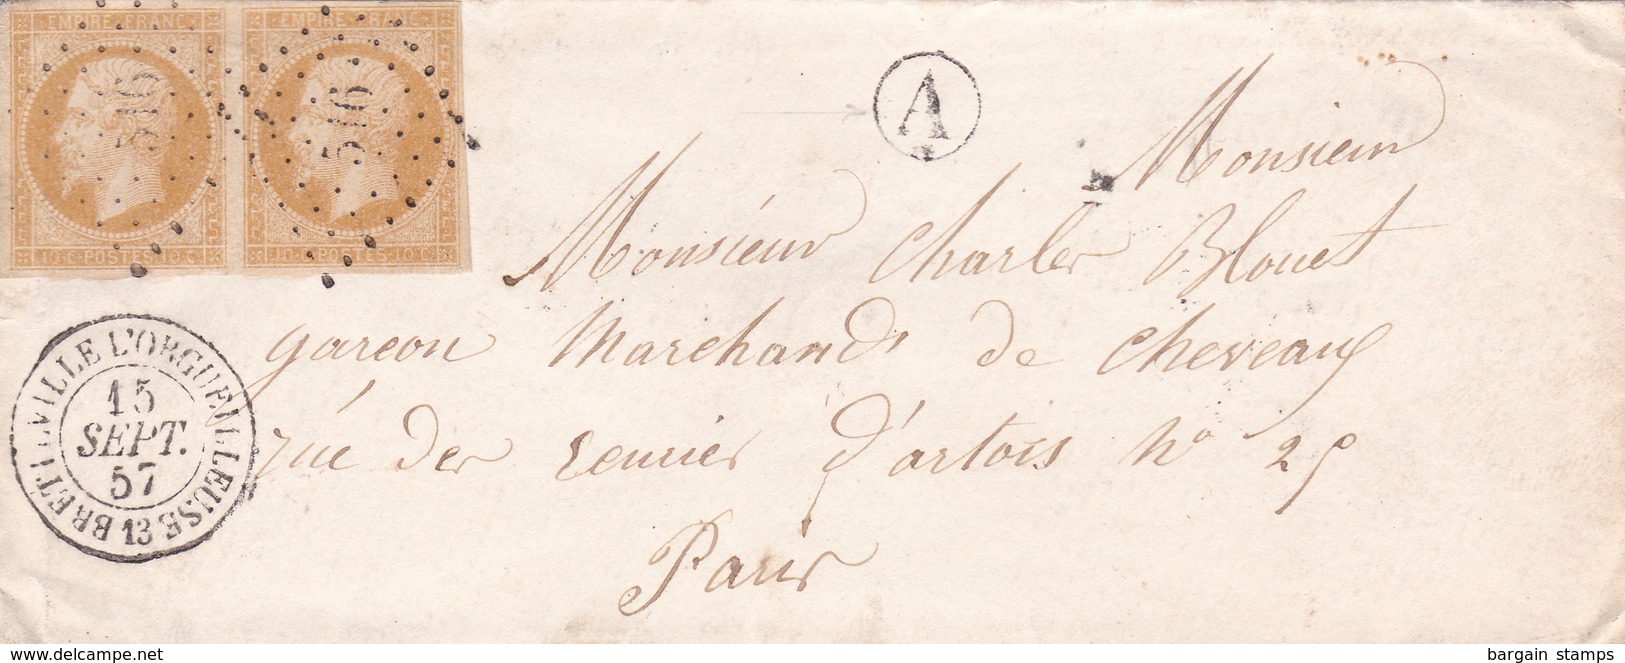 EMPIRE FRANC EMPIRE FRANC
516 546
10 C. POSTES 10 C. 10 C. POSTES 10 C.
A
Monsieur
Monsieur Charles Blouet
garcon Marchand de cheveaux
rue des d'artois No 25
Paris
BRETTEVILLE L'ORGUEILLEUSE 13
15
SEPT.
57
www.delcampe.net
bargain stamps